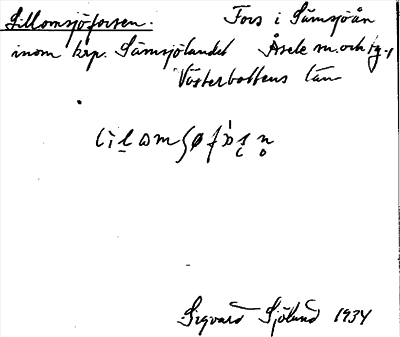 Lillomsjöforsen. Fors i Sämsjöån
inom krp. Sämsjölandet Åsele sn. och tg.,
Västerbottens län
Sigvard Sjölund 1934